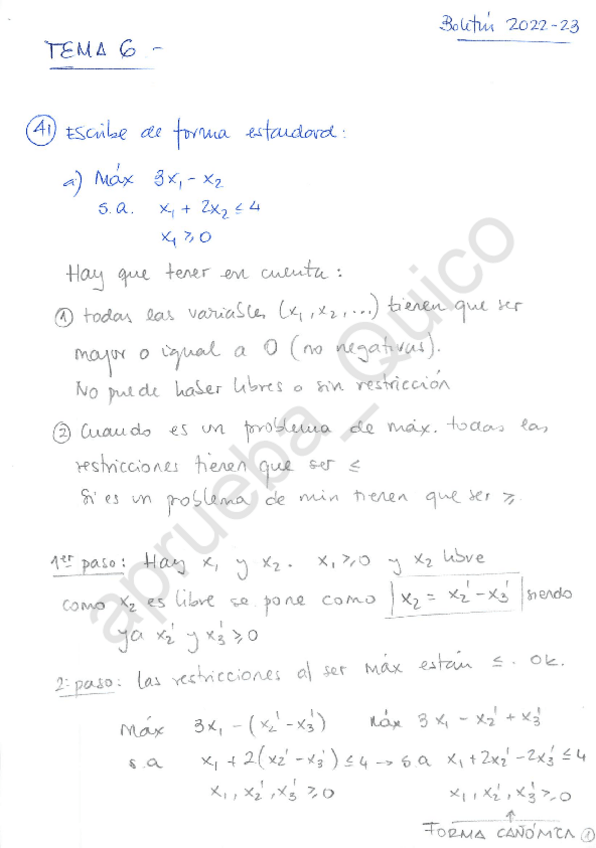 Boletín 2022-23
TEMA 6 -
41 Escribe de forma estandard:
a) Máx 3x₁ - x₂
s.a. x₁ + 2x₂ ≤ 4
x₁ ≥ 0
Hay que tener en cuenta:
① todas las variables (x₁, x₂, ...) tienen que ser
mayor o igual a 0 (no negativas).
No puede haber libres o sin restricción
② Cuando es un problema de máx. todas las
restricciones tienen que ser ≤
Si es un problema de min tienen que ser ≥.
1er paso: Hay x₁ y x₂. x₁ ≥ 0 y x₂ libre
como x₂ es libre se pone como x₂ = x₂' - x₃' siendo
ya x₂' y x₃' ≥ 0
2º paso: las restricciones al ser máx están ≤. OK.
Máx 3x₁ - (x₂' - x₃') Máx 3x₁ - x₂' + x₃'
s.a x₁ + 2(x₂' - x₃') ≤ 4 → s.a x₁ + 2x₂' - 2x₃' ≤ 4
x₁, x₂', x₃' ≥ 0 x₁, x₂', x₃' ≥ 0
↑
FORMA CANÓNICA ①
aprueba_Quico